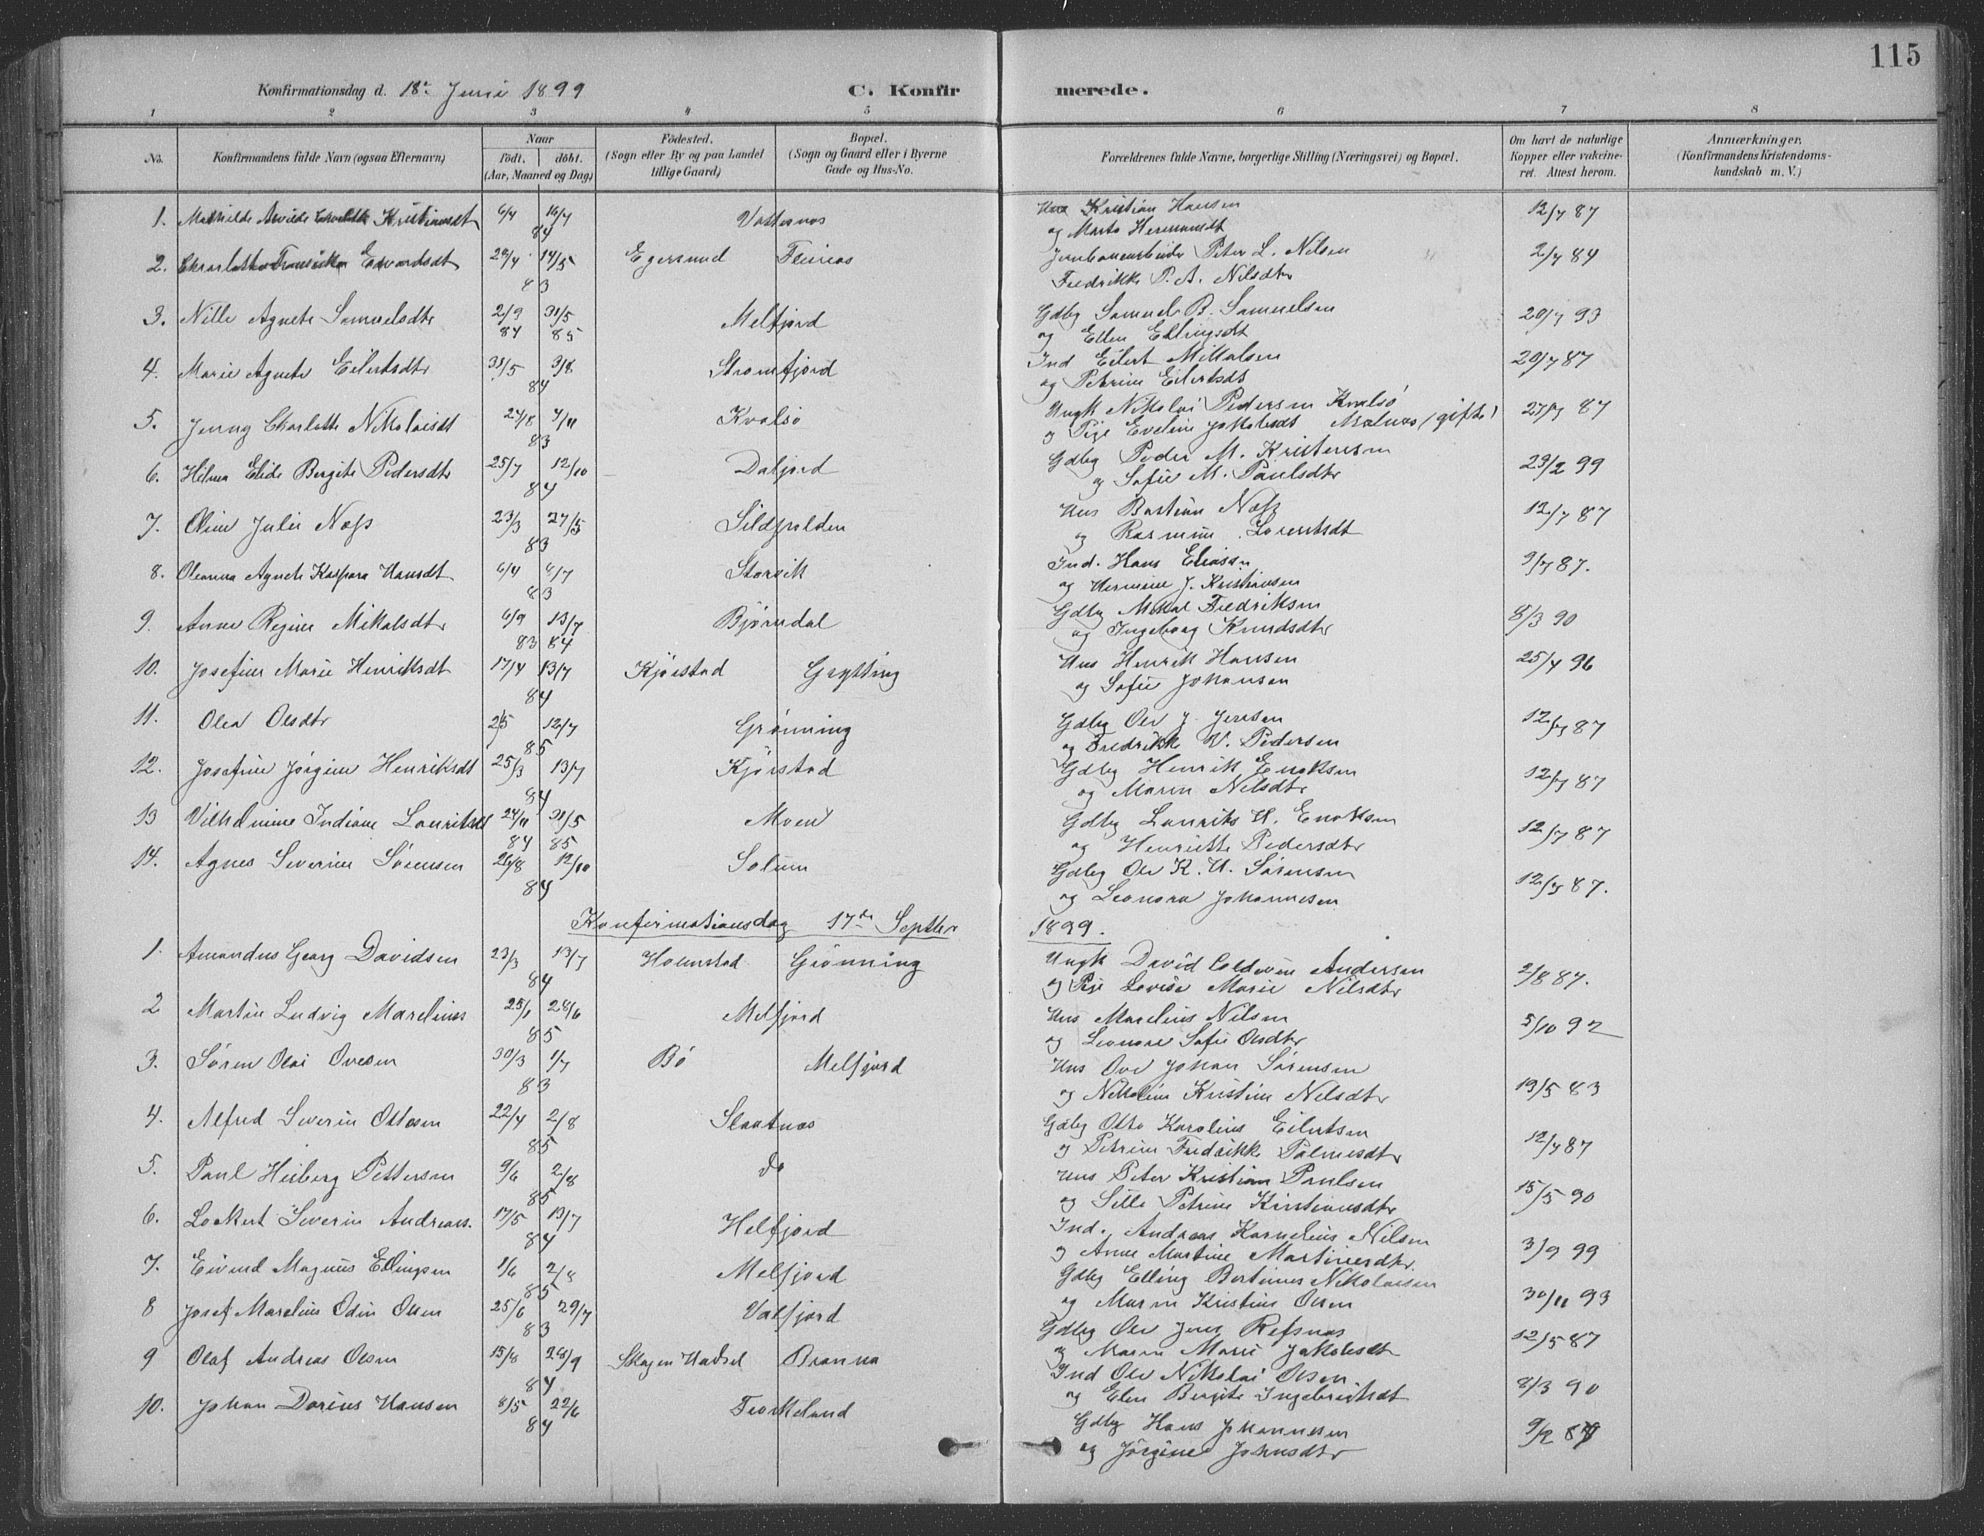 115
Konfirmationsdag d. 18de Juni 1899 C. Konfirmerede.
1 2 3 4 5 6 7 8
No. Konfirmandens fulde Navn (ogsaa Efternavn) Naar født. døbt. (Aar, Maaned og Dag) Fødested. (Sogn eller By og paa Landet tillige Gaard) Bopæl. (Sogn og Gaard eller i Byerne Gade og Hus-No. Forældrenes fulde Navne, borgerlige Stilling (Næringsvei) og Bopæl. Om havt de naturlige Kopper eller vakcineret. Attest herom. Anmærkninger. (Konfirmandens Kristendomskundskab m. V.)
1. Mathilde Kristiansdt 6/4 16/7 84 Vottesnes Hus Kristian Hansen 12/7 87
og Marta Hermansdt
2. Charlotte Edvardsdt 29/4 14/5 83 Egersund Fleines Jernbanearbeider Peter L. Nilsen 2/7 84
Fredrikke P. A. Nilsdtr
3. Nille Agnete Samuelsdtr 2/9 84 31/5 85 Melfjord Gdbg Samuel B. Samuelsen 20/7 93
og Ellen Ellingsdt
4. Marie Agnete Eilertsdtr 31/5 3/8 84 Straumfjord Ind Eilert Mikkalsen 20/7 87
og Petrine Eilertsdt
5. Jenny Charlotte Nikolaisdt 24/8 4/11 83 Kvalsø Ungk Nikolai Pedersen Kvalsø 27/7 87
og Pige Eveline Jakobsdt Malnes (gifte)
6. Hilma Elide Bergite Pedersdtr 25/7 12/10 84 Dalfjord Gdbg Peder M. Kristensen 23/2 99
og Sofie M. Paulsdtr
7. Oline Julie Næss 23/3 27/5 83 Sildpolden Hus Bastian Næss 12/7 87
og Rasmine Lorentsdt
8. Oleanna Agnete Kaspara Hansdt 6/4 6/7 83 Storvik Ind. Hans Eliassn 9/7 87.
og Hermine J. Kristiansen
9. Anne Regine Mikalsdtr 6/9 83 13/7 84 Bjørndal Gdbg Mikal Fredriksen 8/3 90
og Ingeborg Knudsdtr
10. Josefine Marie Henriksdt 17/4 13/7 84 Kjørstad Grytting Hus Henrik Hansen 25/4 96
og Sofie Johansen
11. Olea Olsdtr 12/7 85 Grønning Gdbg Ole J. Jensen 12/7 87
og Fredrikke V. Pedersen
12. Josefine Jørgine Henriksdt 25/3 13/7 84 Kjørstad Gdbg Henrik Enoksen 12/7 87
og Maren Nilsdtr
13 Vilhelmine Indiane Lauritsdt 24/11 84 31/5 85 Moen Gdbg Lauriks H. Enoksen 12/7 87
og Henriette Pedersdtr
14. Agnes Severine Sørensen 26/8 12/10 84 Solum Gdbg Ole K. H. Sørensen 12/7 87.
og Leonora Johannesen
Konfirmationsdag 17de Septbr 1899.
1. Amandus Georg Davidsen 23/3 13/7 84 Holmstad Grønning Ungk David Andersen 2/8 87.
og Pige Lovise Marie Nilsdtr
2 Martin Ludvig Mareliuss 25/1 28/6 85 Melfjord Hus Marelius Nilsen 5/10 92
og Leonore Sofie Olsdtr
3. Søren Olai Ovesen 30/3 1/7 83 Bø Melfjord Hus Ove Johan Sørensen 19/5 83
og Nikoline Kristine Nilsdtr
4. Alfred Severin Ottosen 22/4 2/8 85 Slaatnes Gdbg Otto Karolius Eilertsen 12/7 87
og Petrine Fredrikke Palmesdtr
5. Paul Heiberg Pettersen 9/6 2/8 85 do Hus Peter Kristian Paulsen 15/5 90
og Sille Petrine Kristiansdtr
6. Lockert Severin Andreass. 17/5 13/7 84 Helfjord Ind. Andreas Kornelius Nilsen 3/9 99
og Anne Martine Martinesdtr.
7. Eivind Magnus Ellingsen 1/6 2/8 85 Melfjord Gdbg Elling Bertinus Nikolaisen 30/11 93
og Maren Kristine Olsen
8 Josef Marelius Odin Olsen 25/6 29/7 83 Valfjord Gdbg Ole Jens Refsnes 12/5 87
og Maren Marie Jakobsdt
9 Olaf Andreas Olsen 15/8 28/9 84 Skagen Hadsel Branna Ind Ole Nikolai Olsen 8/3 90
og Elen Bergite Ingebrigtsdt
10. Johan Dorius Hansen 8/5 22/6 84 Frøskeland Gdbg Hans Johannesen 9/2 87
og Jørgine Johnsdtr